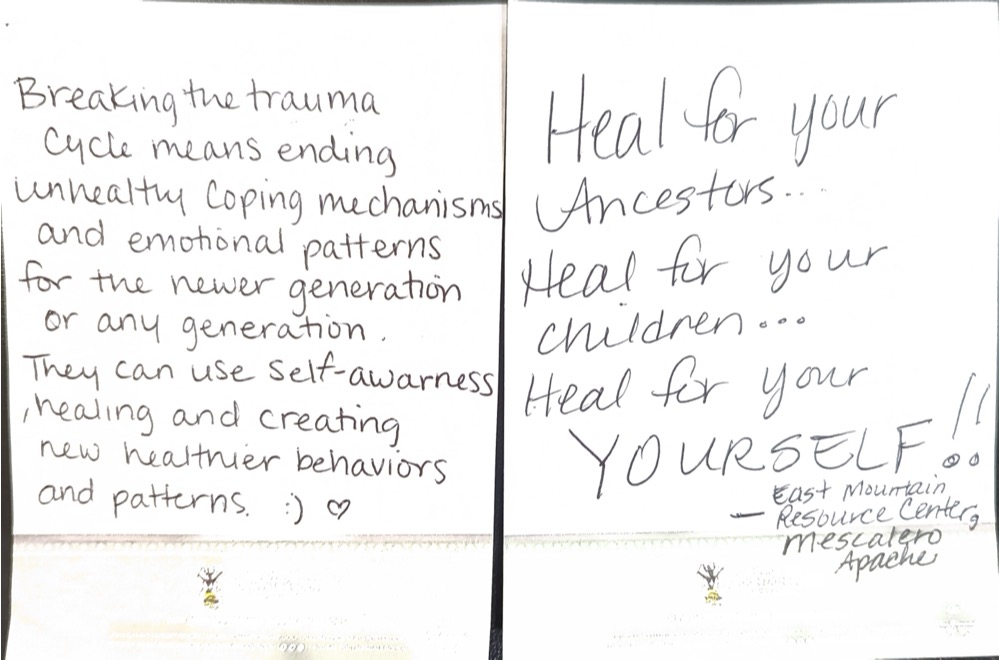 Breaking the trauma
Cycle means ending
unhealthy Coping mechanisms
and emotional patterns
for the newer generation
or any generation.
They can use self-awarness
,healing and creating
new healthier behaviors
and patterns. :) ♡
Heal for your
Ancestors....
Heal for your
children...
Heal for your
YOURSELF!!
East Mountain
— Resource Center,
Mescalero
Apache